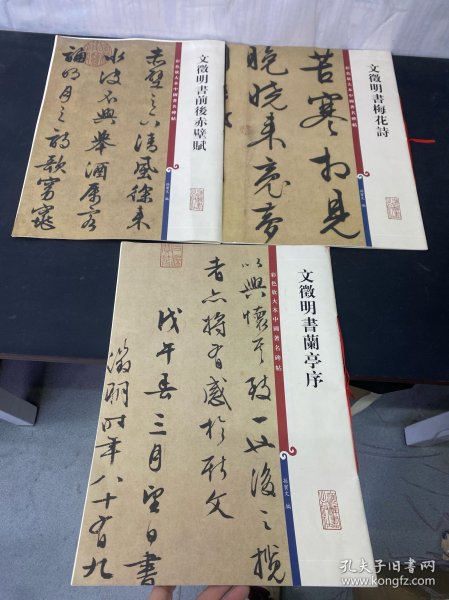 文徵明書前後赤壁賦
彩色放大本中國著名碑帖
孫寶文 編
赤壁之下清風徐來
水波不興舉酒屬客
誦明月之詩歌窈窕
文徵明書梅花詩
彩色放大本中國著名碑帖
孫寶文 編
苦寒相見
晚
文徵明書蘭亭序
彩色放大本中國著名碑帖
孫寶文 編
以興懷其致一也後之攬
者亦將有感於斯文
戊午春三月望日書
徵明時年八十有九
孔夫子旧书网
book.kongfz.com